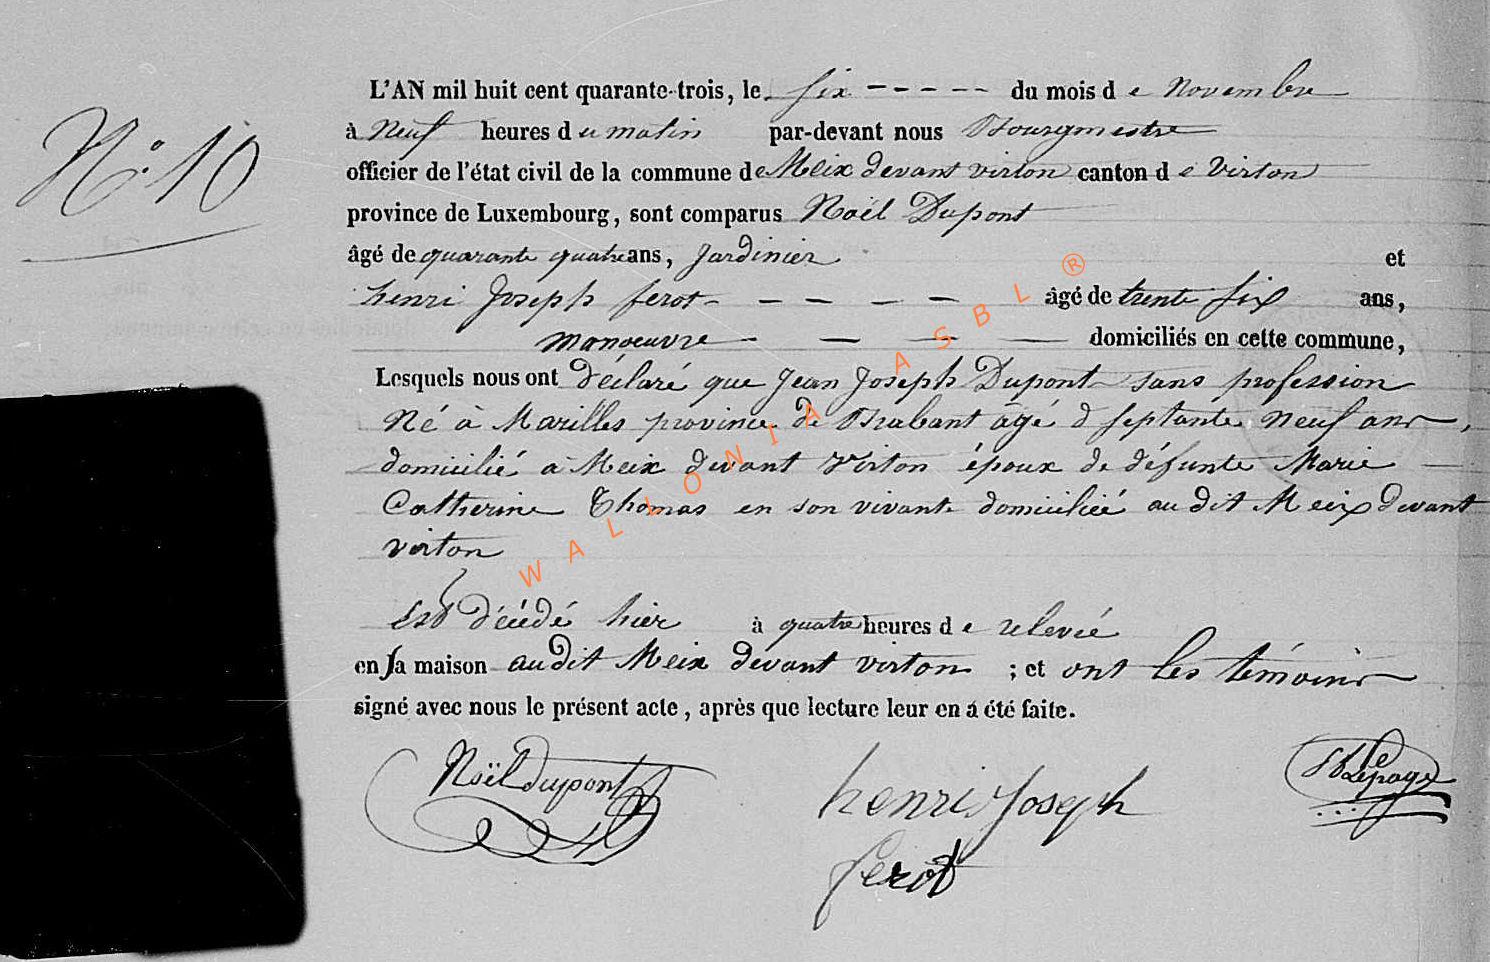 N° 10
L'AN mil huit cent quarante-trois, le six - - - - - du mois de Novembre
à Neuf heures du matin par-devant nous Bourgmestre
officier de l'état civil de la commune de Meix devant virton canton de Virton
province de Luxembourg, sont comparus Noël Dupont
âgé de quarante quatre ans, Jardinier et
henri Joseph ferot - - - - - âgé de trente six ans,
manoeuvre - - - - domiciliés en cette commune,
Lesquels nous ont déclaré que Jean Joseph Dupont sans profession
Né à Marilles province de Brabant âgé d septante neuf ans,
domicilié à Meix devant Virton époux de défunte Marie
Catherine Thomas en son vivante domiciliée audit Meix devant
virton
Est décédé hier à quatre heures de relevée
en sa maison audit Meix devant virton ; et ont les témoins
signé avec nous le présent acte, après que lecture leur en a été faite.
Noël dupont
henri Joseph
ferot
Lepage
WALLONIA ASBL ®